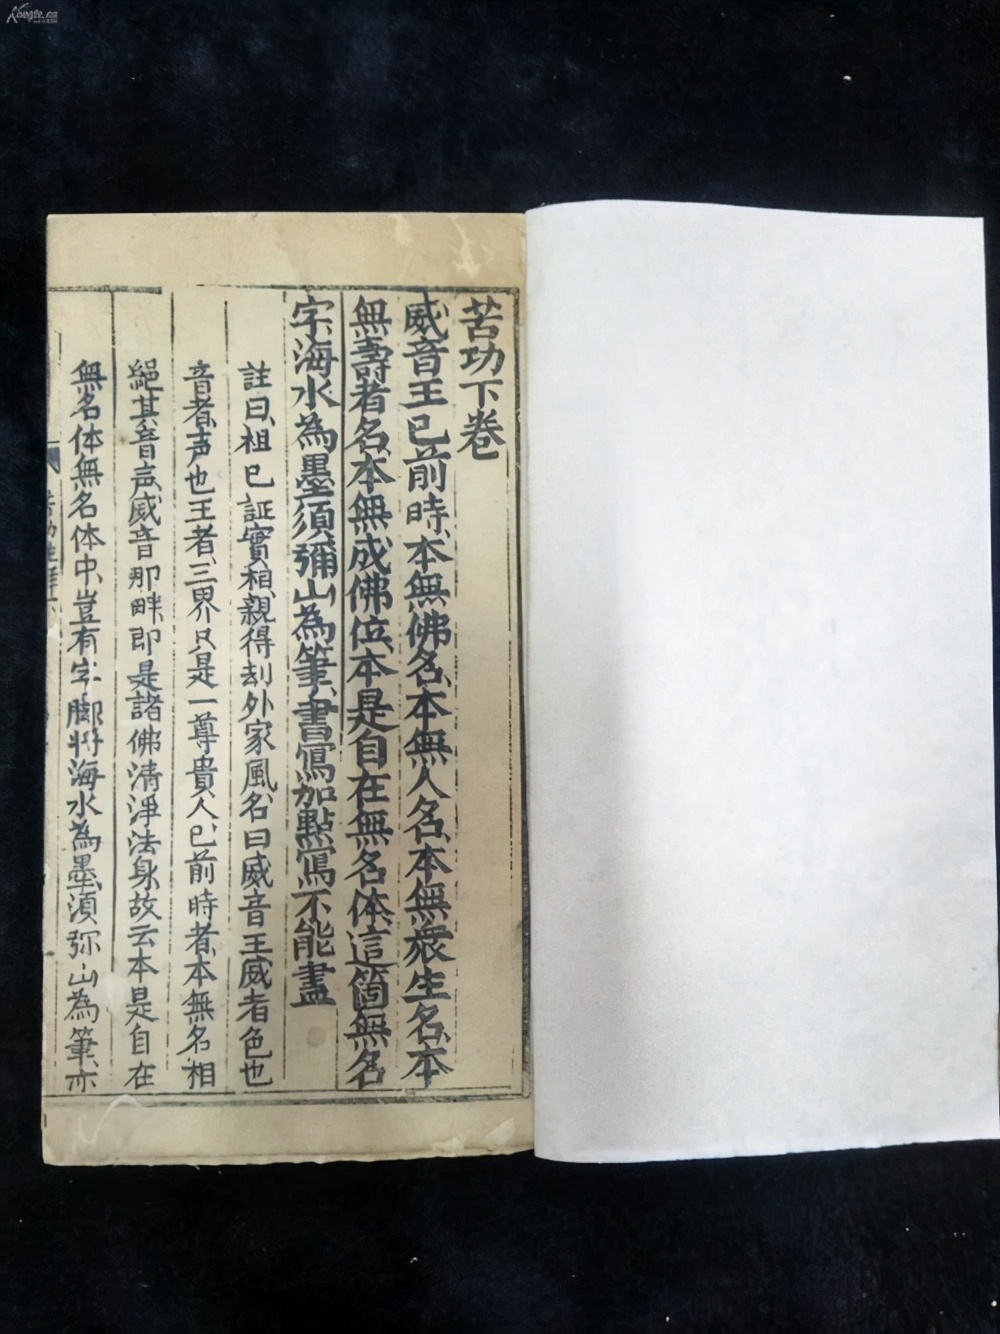 苦功下卷
威音王已前時、本無佛名、本無人名、本無衆生名、本
無壽者名、本無成佛位、本是自在無名体、這箇無名
字、海水為墨、須彌山為筆、書寫加點寫不能盡
註曰、祖已証實相、親得刦外家風、名曰威音王、威者色也
音者、声也、王者、三界只是一尊貴人、已前時者、本無名相
絕其音声、威音那畔、即是諸佛清淨法身、故云本是自在
無名体、無名体中、豈有字脚、將海水為墨、須弥山為筆、亦